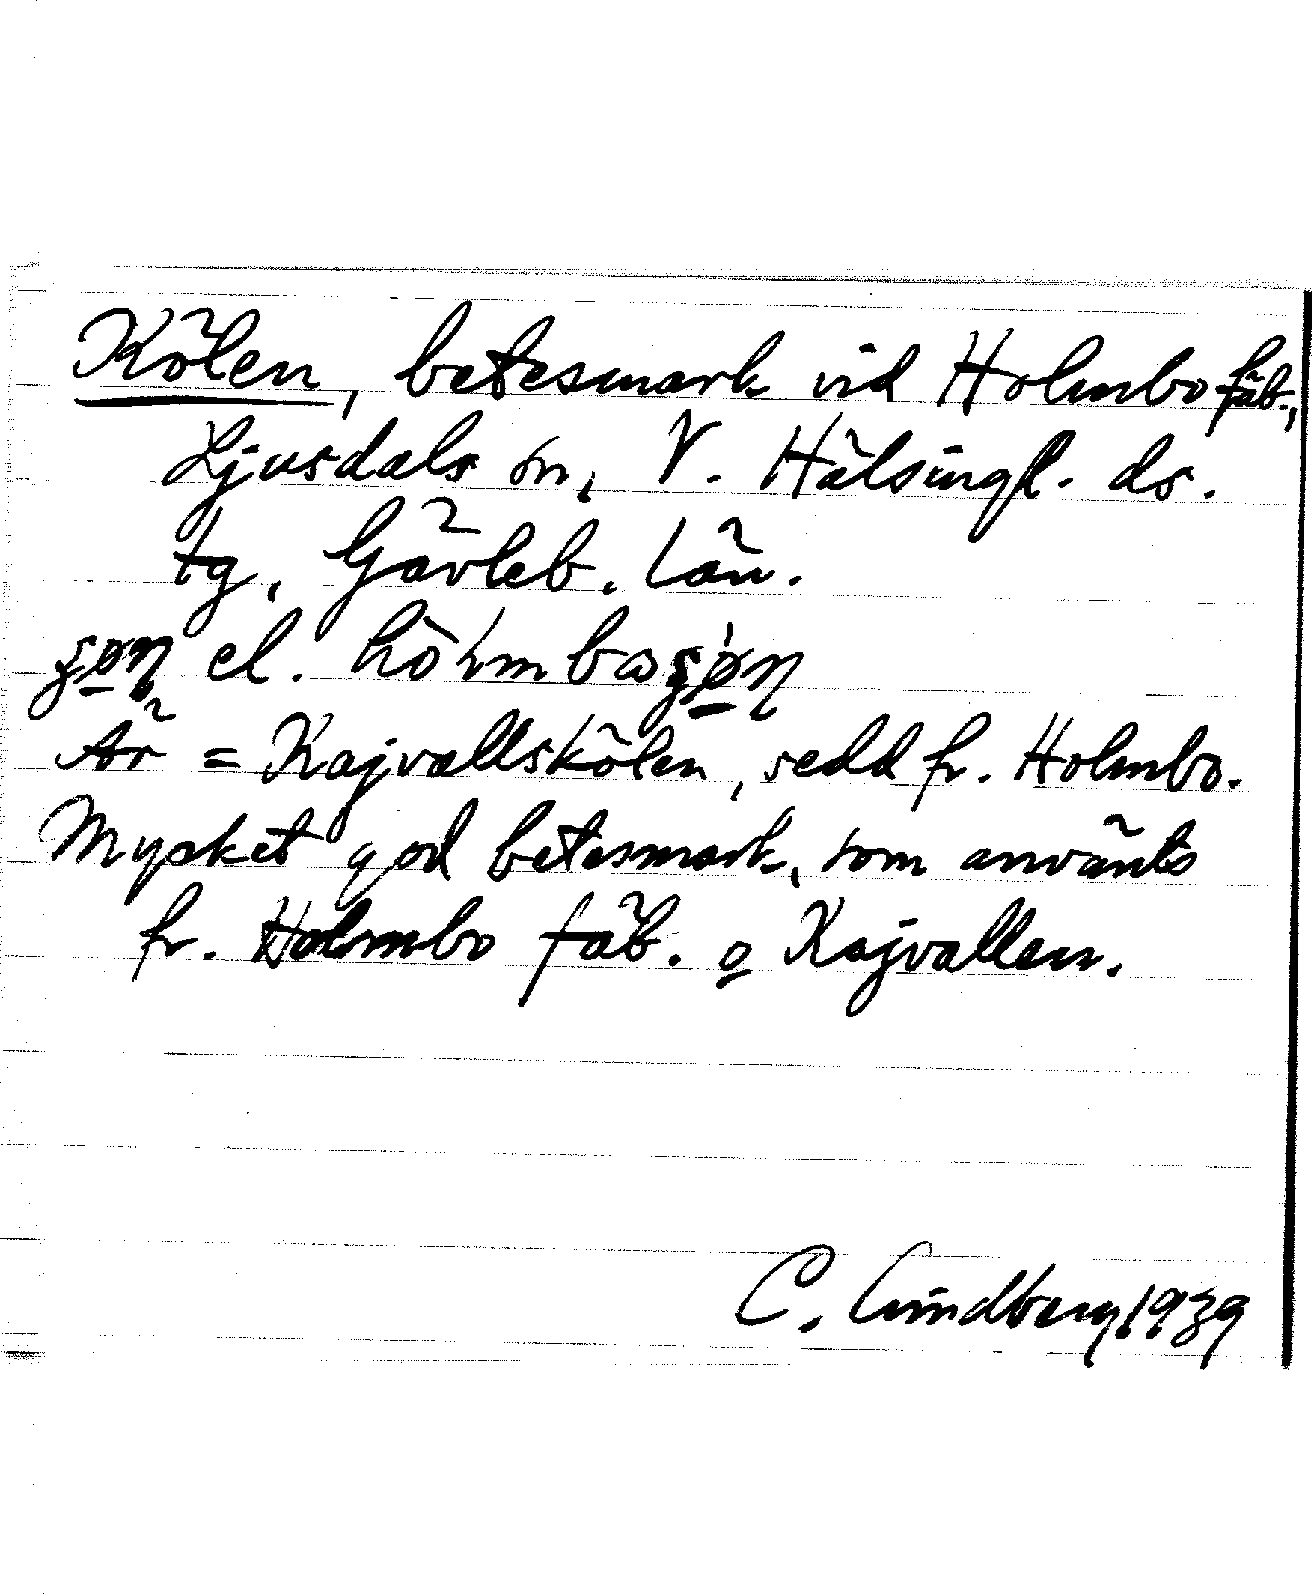 Kölen, betesmark vid Holmbo fäb.,
Ljusdals sn, V. Hälsingl. ds.
tg, Gävleb. län.
el.
Är = Kajvallskölen, sedd fr. Holmbo.
Mycket god betesmark, som använts
fr. Holmbo fäb. o Kajvallen.
C. Lindberg 1939